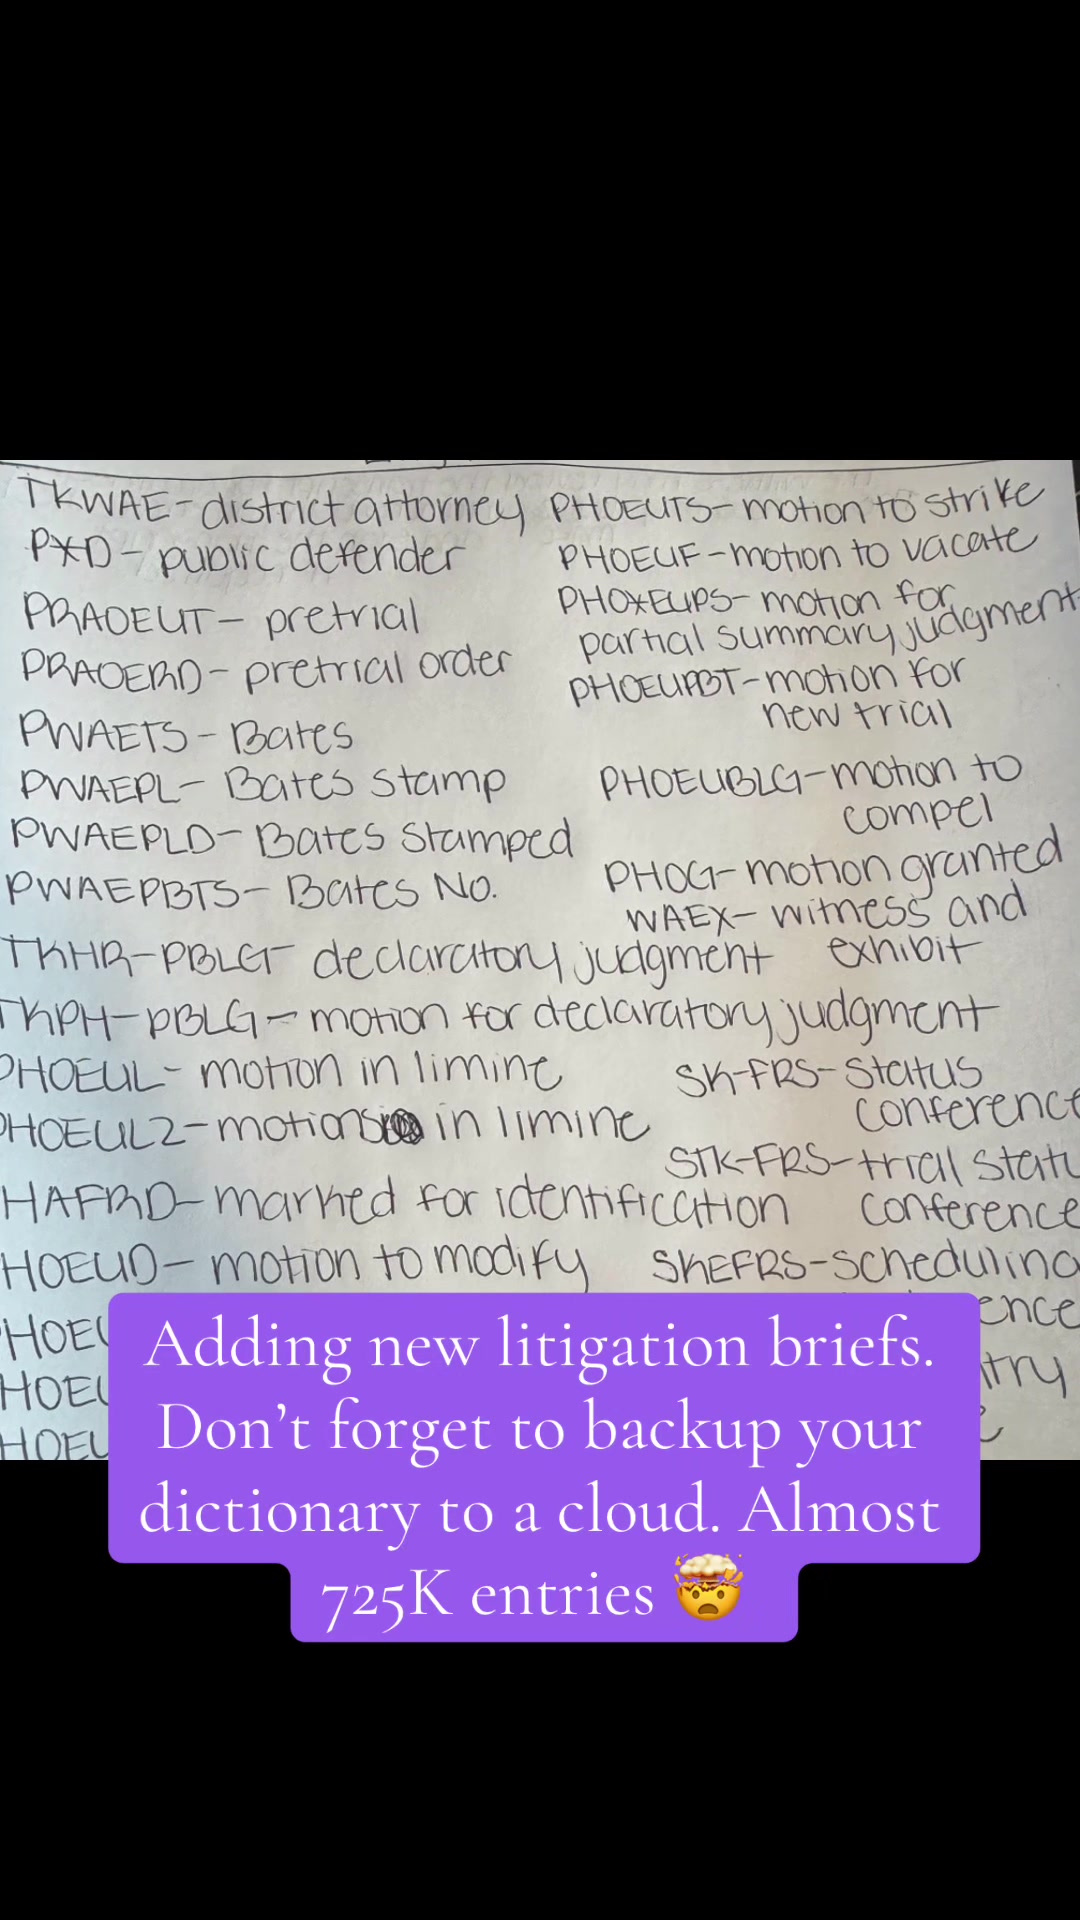 TKWAE- district attorney
P*D- public defender
PRAOEUT- pretrial
PRAOERD- pretrial order
PWAETS- Bates
PWAEPL- Bates stamp
PWAEPLD- Bates stamped
PWAEPBTS- Bates No.
TKHR-PBLGT declaratory judgment
TKPH-PBLG- motion for declaratory judgment
PHOEUL- motion in limine
PHOEULZ- motions in limine
HAFRD- marked for identification
HOEUD- motion to modify
PHOEUTS- motion to strike
PHOEUF- motion to vacate
PHO*EUPS- motion for
partial summary judgment
PHOEUPBT- motion for
new trial
PHOEUBLG- motion to
compel
PHOG- motion granted
WAEX- witness and
exhibit
SK-FRS- status
conference
STK-FRS- trial statu
conference
SKEFRS- scheduling
ence
Adding new litigation briefs.
Don't forget to backup your
dictionary to a cloud. Almost
725K entries 🤯